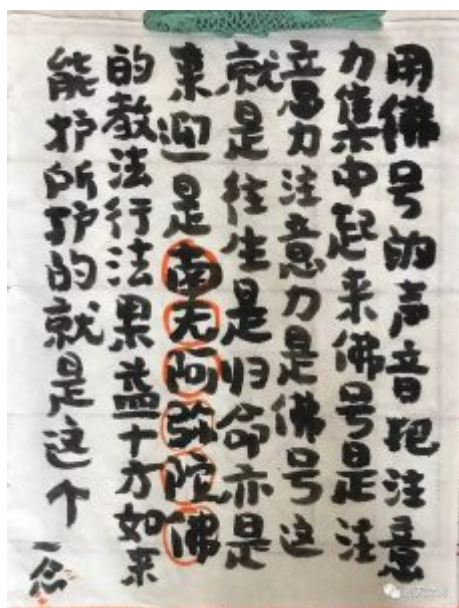 用佛号的声音把注意
力集中起来佛号是注
意力注意力是佛号这
就是往生是归命亦是
来迎是南无阿弥陀佛
的教法行法果益十方如来
能护所护的就是这个一念